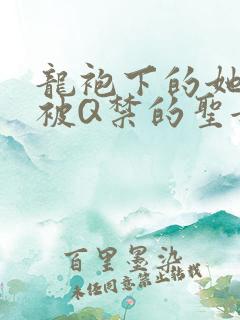 龍袍下的她
被Q禁的聖
百里墨染
未任同意禁止转载